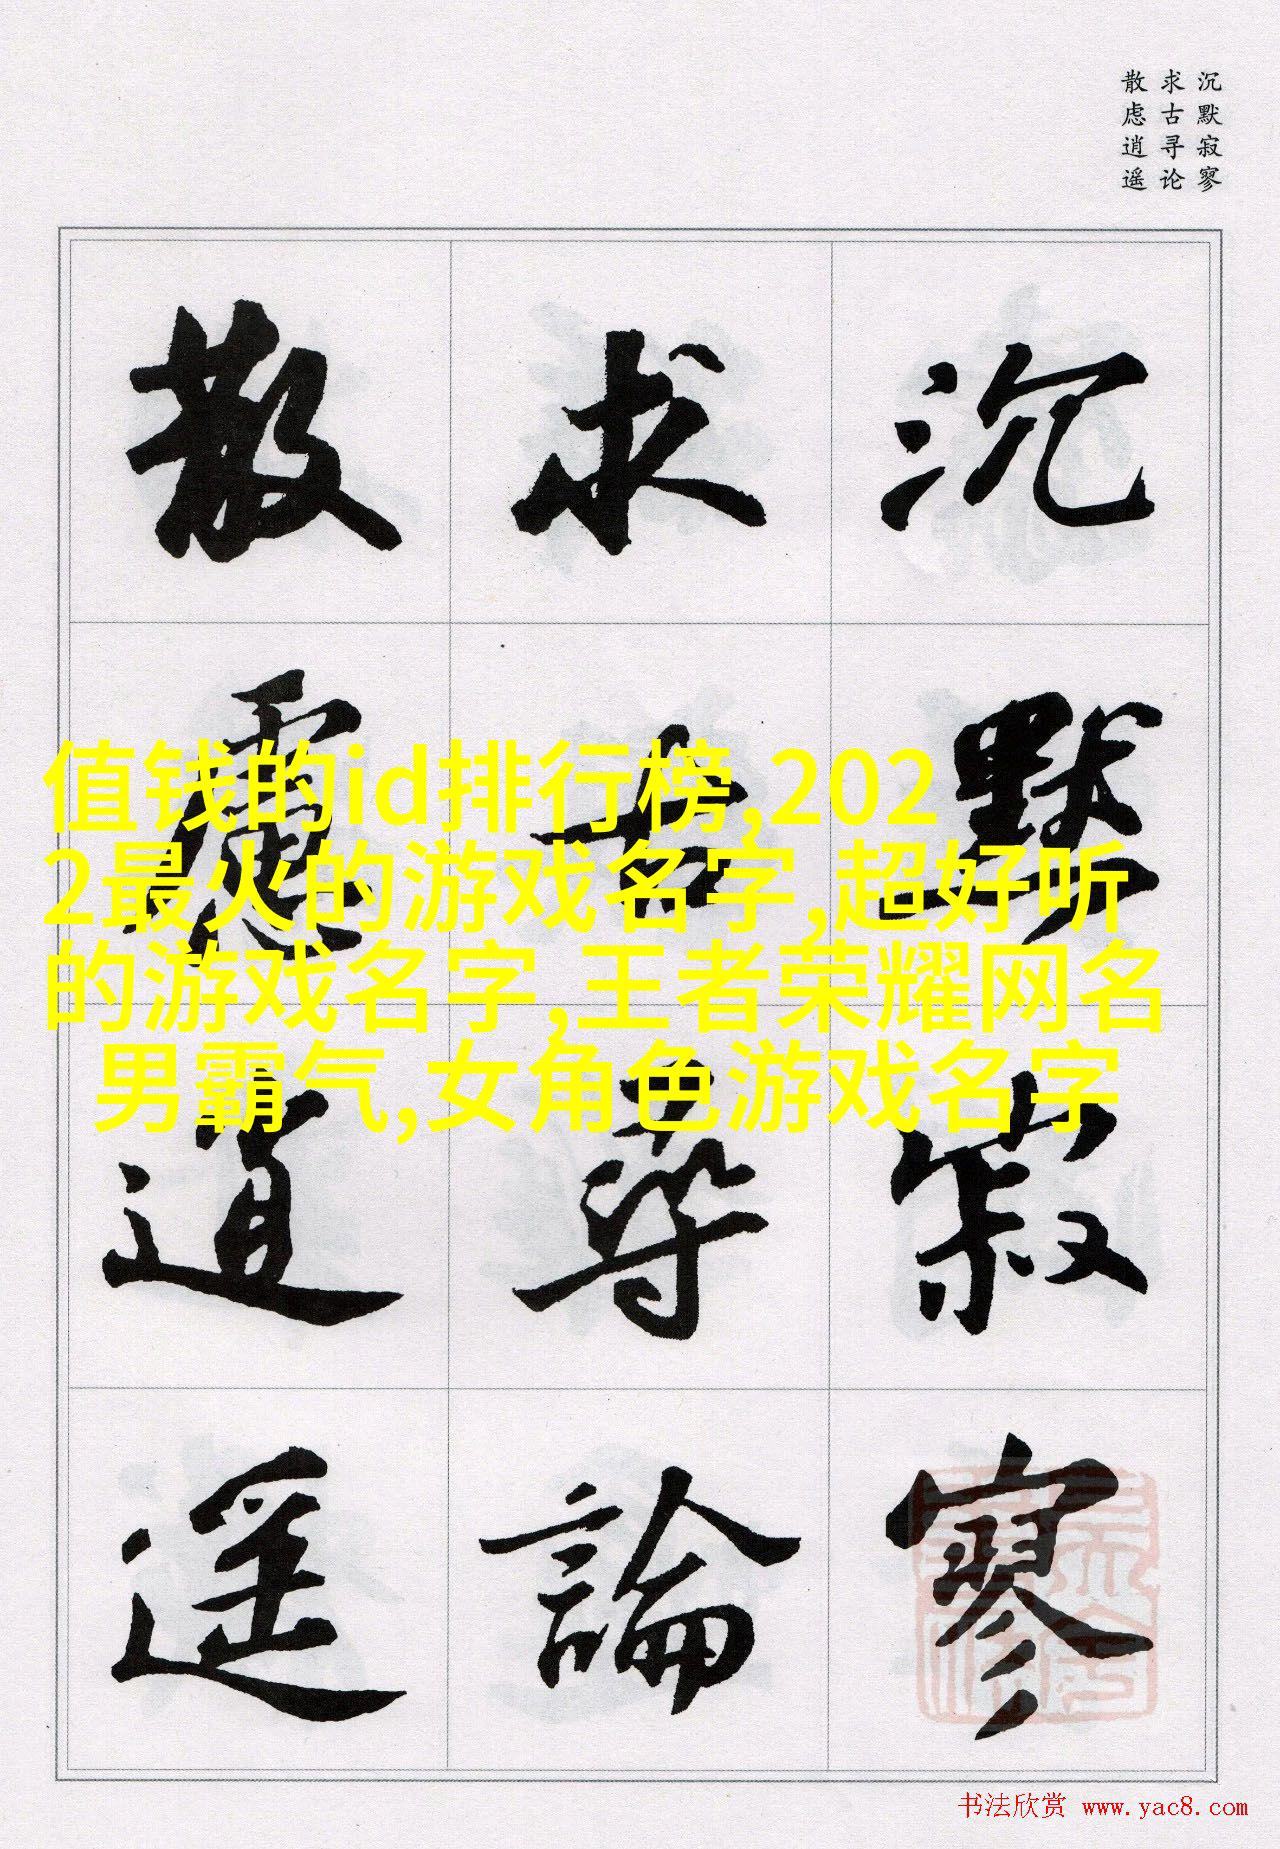 沉默寂寥
求古寻论
散虑逍遥
沉默寂寥
求古尋論
散慮逍遥
值钱的id排行榜,202
2最火的游戏名字,超好听
的游戏名字,王者荣耀网名
男霸气,女角色游戏名字
书法欣赏 www.yac8.com